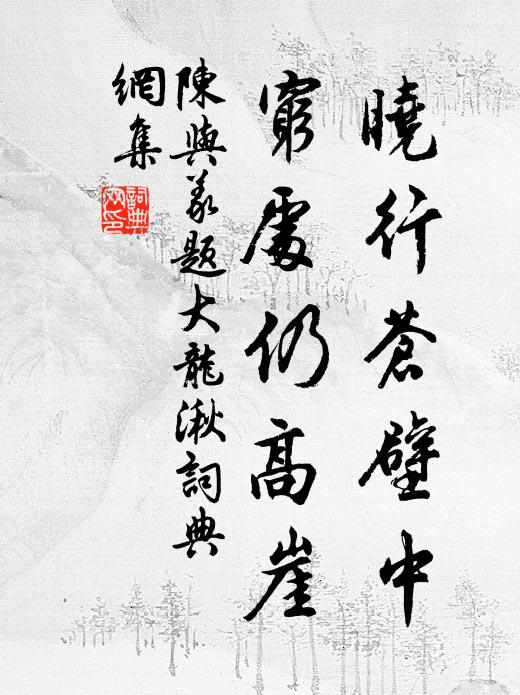 曉行蒼壁中
窮處仍高崖
陳與義題大龍湫詞典
網集
詞典
網印